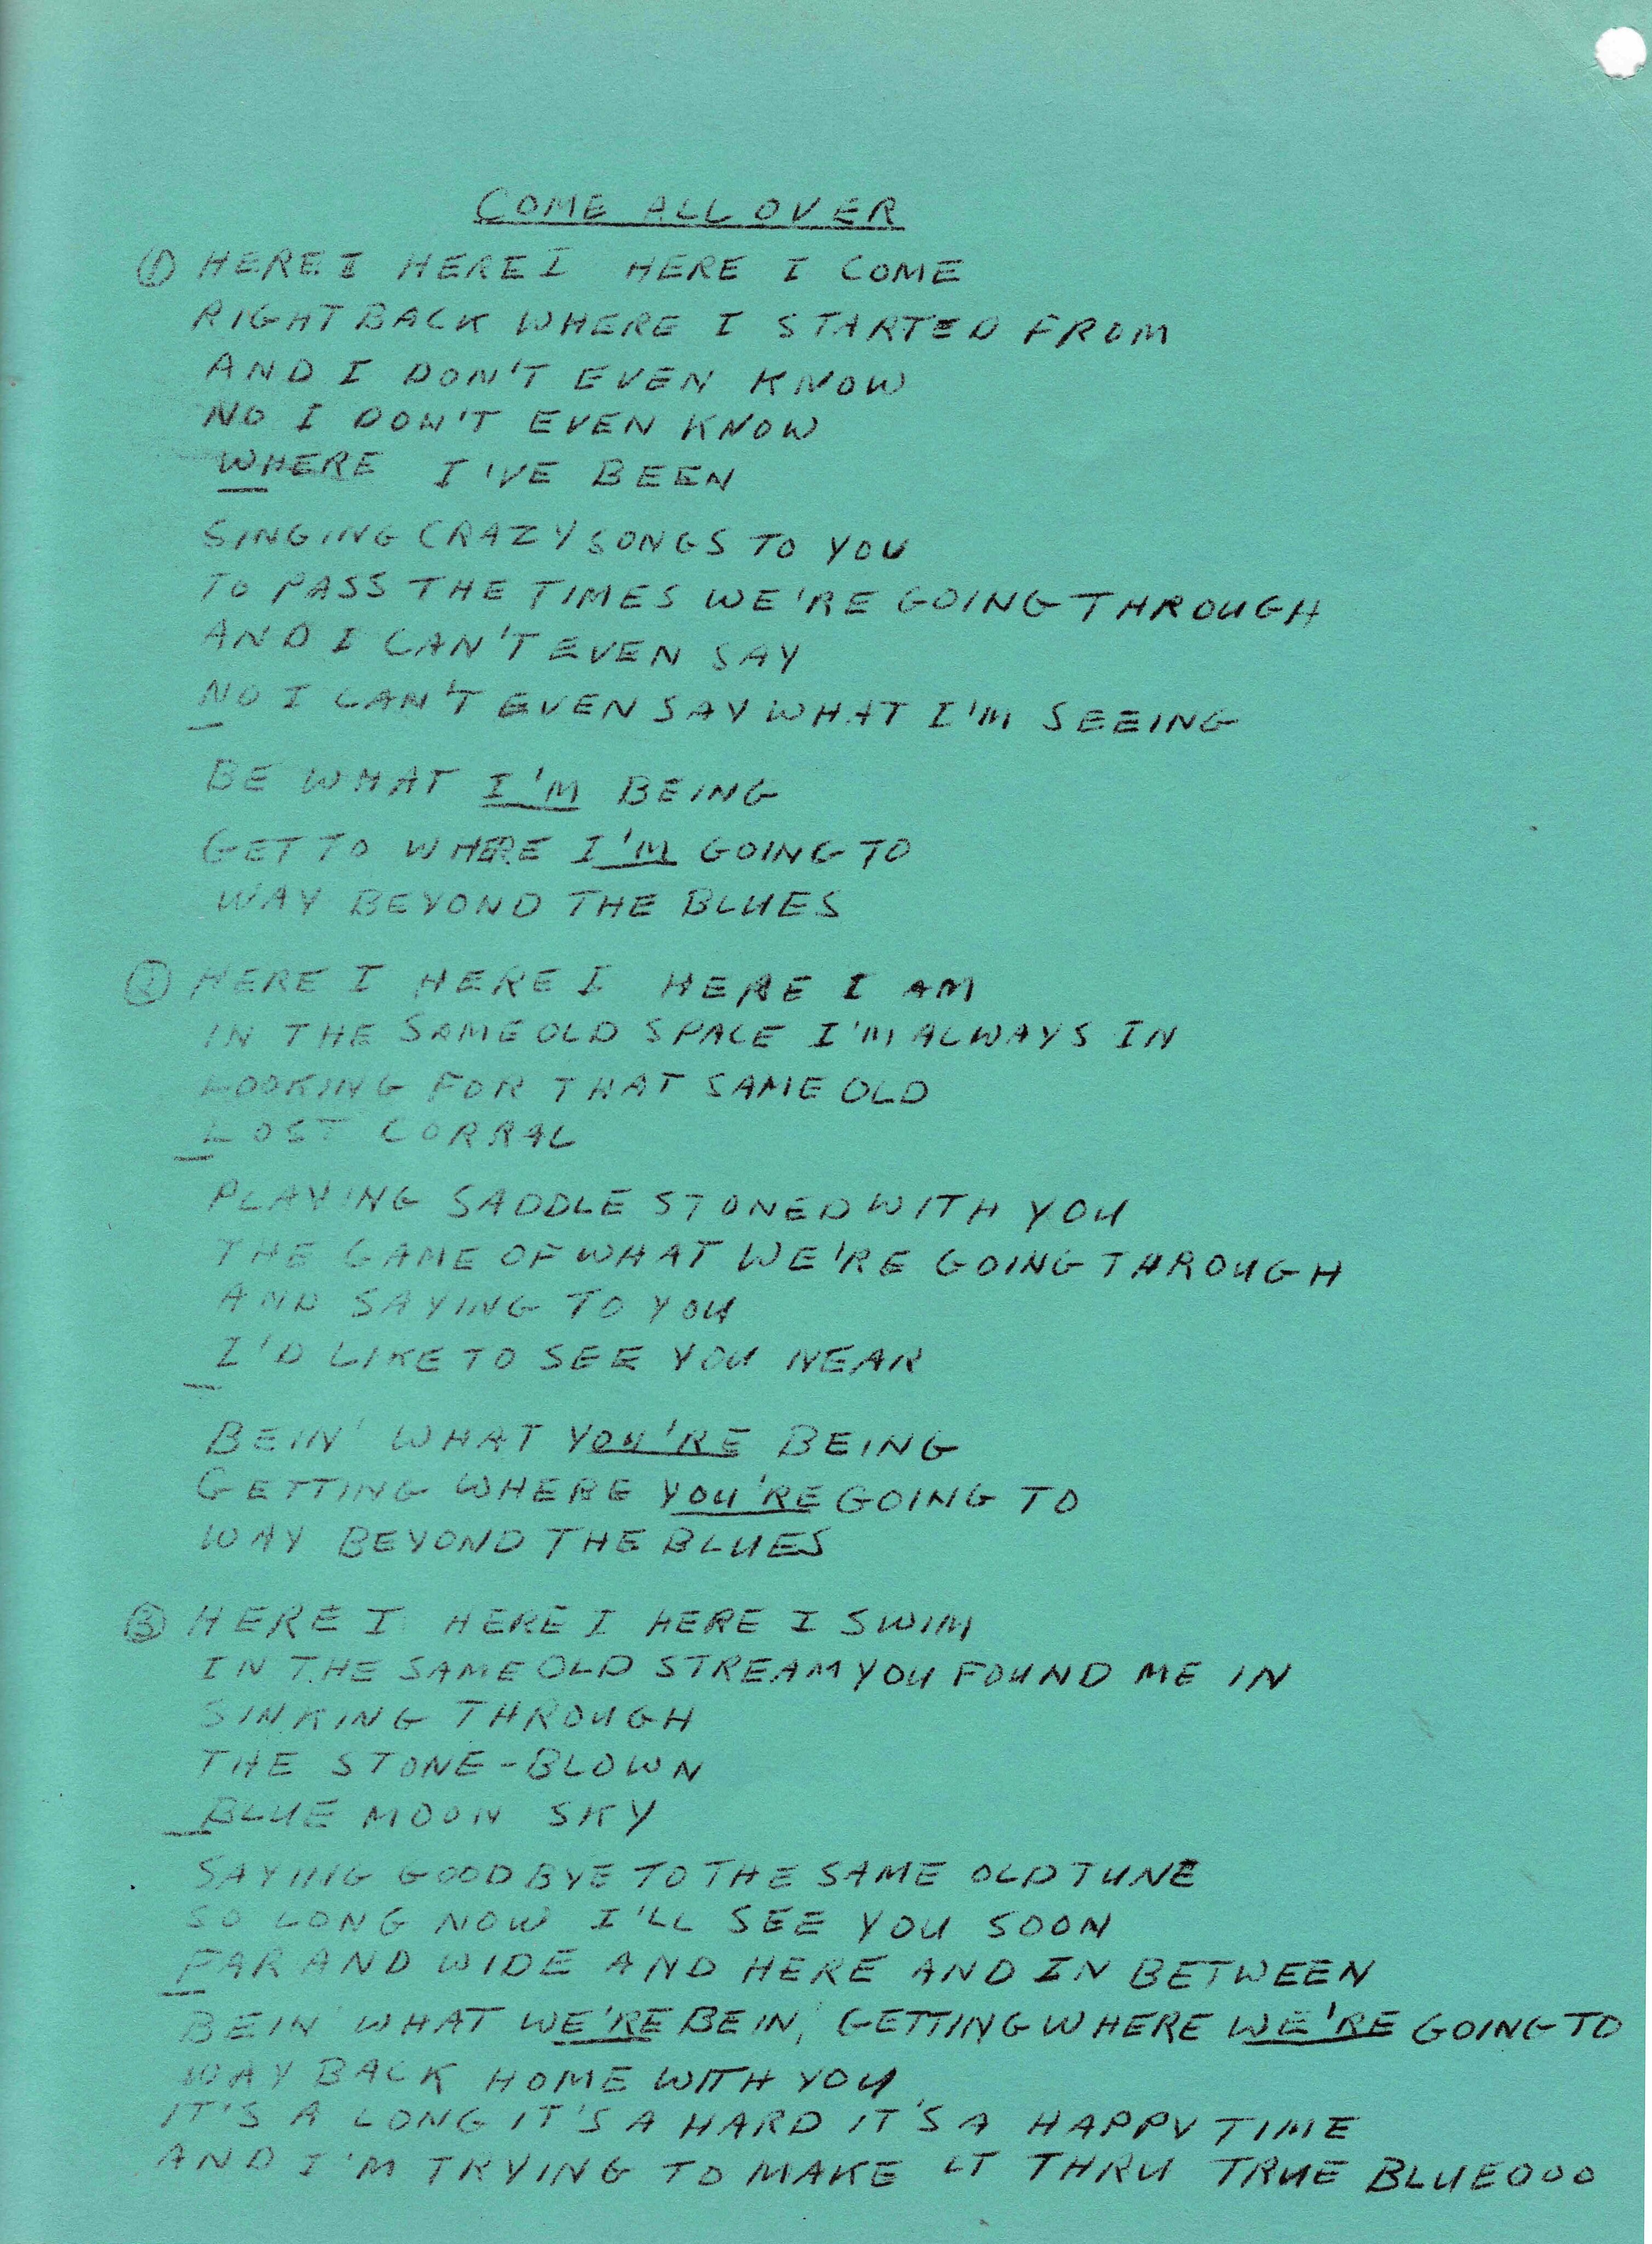 COME ALL OVER
① HERE I HERE I HERE I COME
RIGHT BACK WHERE I STARTED FROM
AND I DON'T EVEN KNOW
NO I DON'T EVEN KNOW
WHERE I'VE BEEN
SINGING CRAZY SONGS TO YOU
TO PASS THE TIMES WE'RE GOING THROUGH
AND I CAN'T EVEN SAY
NO I CAN'T EVEN SAY WHAT I'M SEEING
BE WHAT I'M BEING
GET TO WHERE I'M GOING TO
WAY BEYOND THE BLUES
② HERE I HERE I HERE I AM
IN THE SAME OLD SPACE I'M ALWAYS IN
LOOKING FOR THAT SAME OLD
LOST CORRAL
PLAYING SADDLE STONED WITH YOU
THE GAME OF WHAT WE'RE GOING THROUGH
AND SAYING TO YOU
I'D LIKE TO SEE YOU NEAR
BEIN' WHAT YOU'RE BEING
GETTING WHERE YOU'RE GOING TO
WAY BEYOND THE BLUES
③ HERE I HERE I HERE I SWIM
IN THE SAME OLD STREAM YOU FOUND ME IN
SINKING THROUGH
THE STONE-BLOWN
BLUE MOON SKY
SAYING GOODBYE TO THE SAME OLD TUNE
SO LONG NOW I'LL SEE YOU SOON
FAR AND WIDE AND HERE AND IN BETWEEN
BEIN' WHAT WE'RE BEIN, GETTING WHERE WE'RE GOING TO
WAY BACK HOME WITH YOU
IT'S A LONG IT'S A HARD IT'S A HAPPY TIME
AND I'M TRYING TO MAKE IT THRU TRUE BLUEOOO